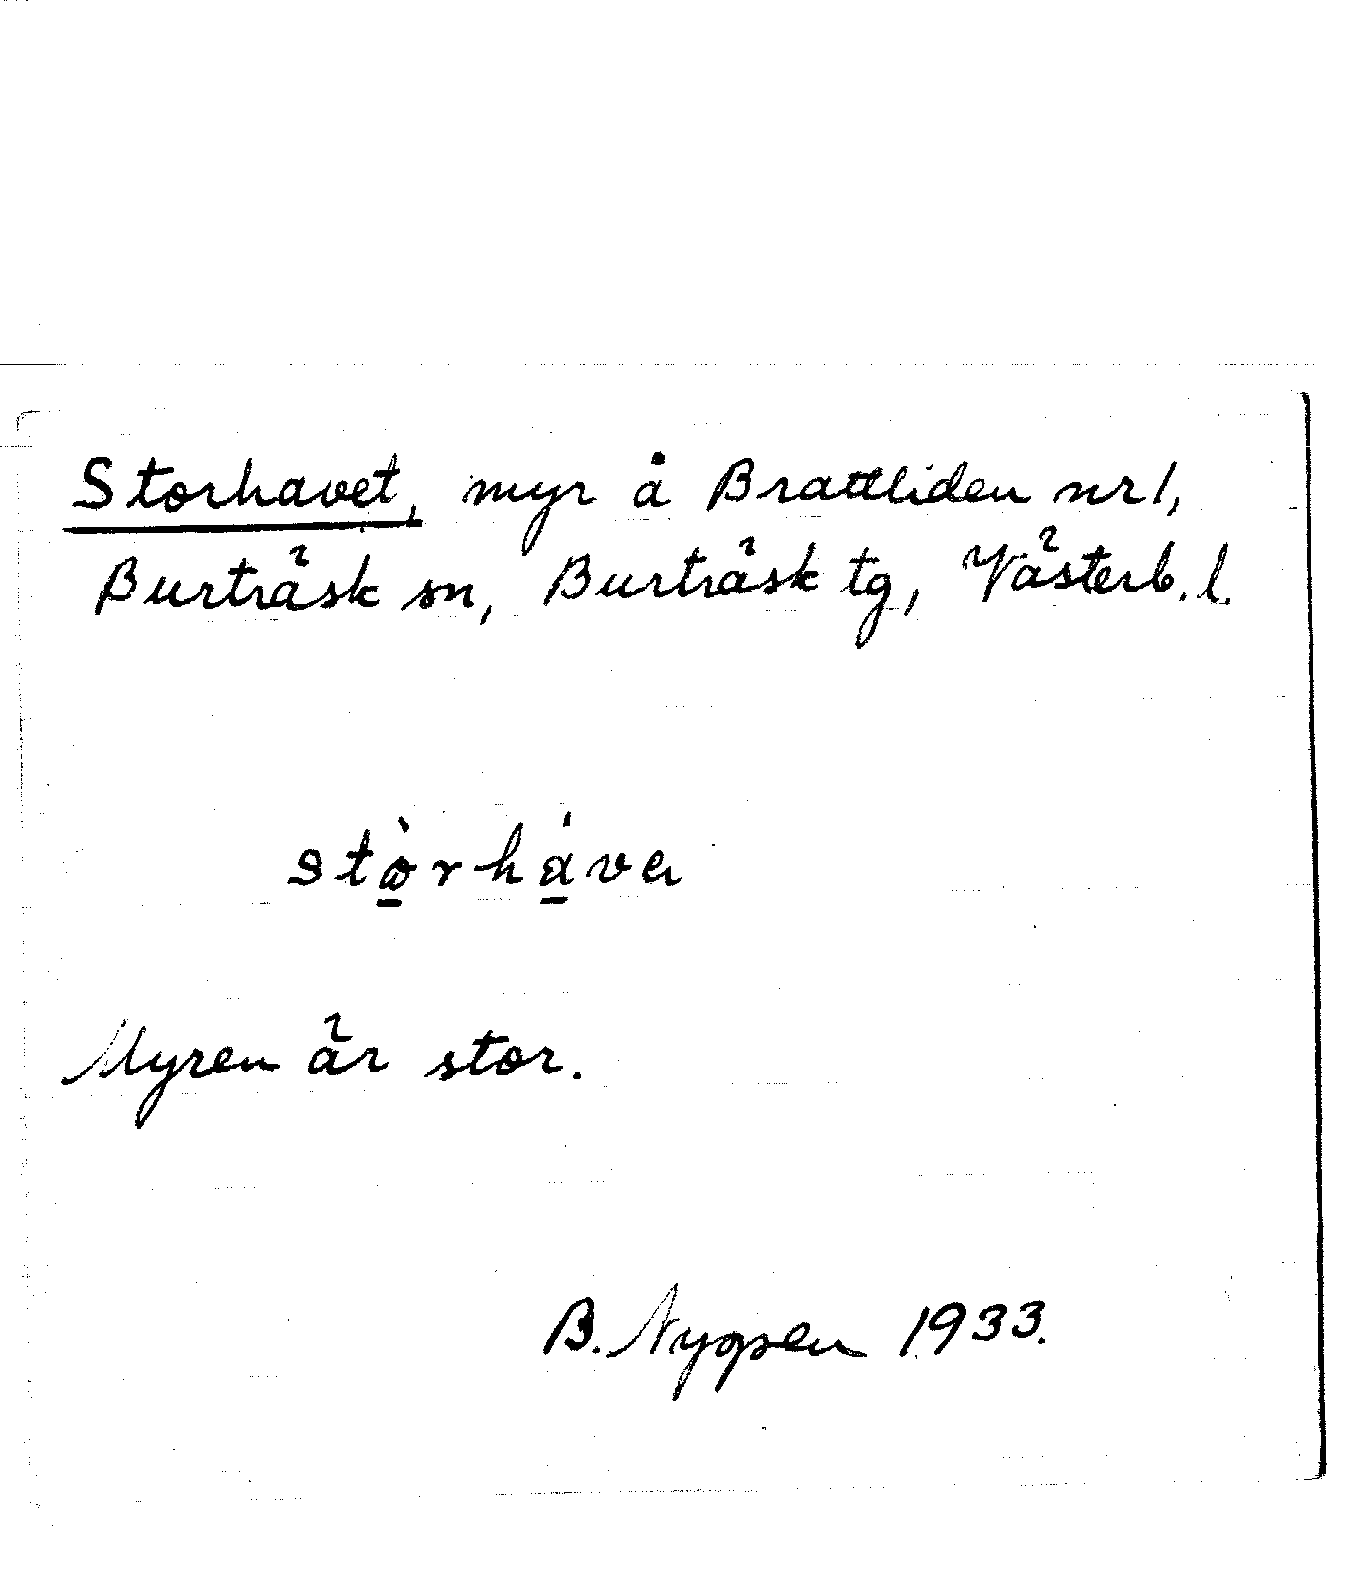 Storhavet, myr å Brattliden nr 1,
Burträsk sn, Burträsk tg, Västerb. l.
stò̱rhá̱va
Myren är stor.
B. 1933.